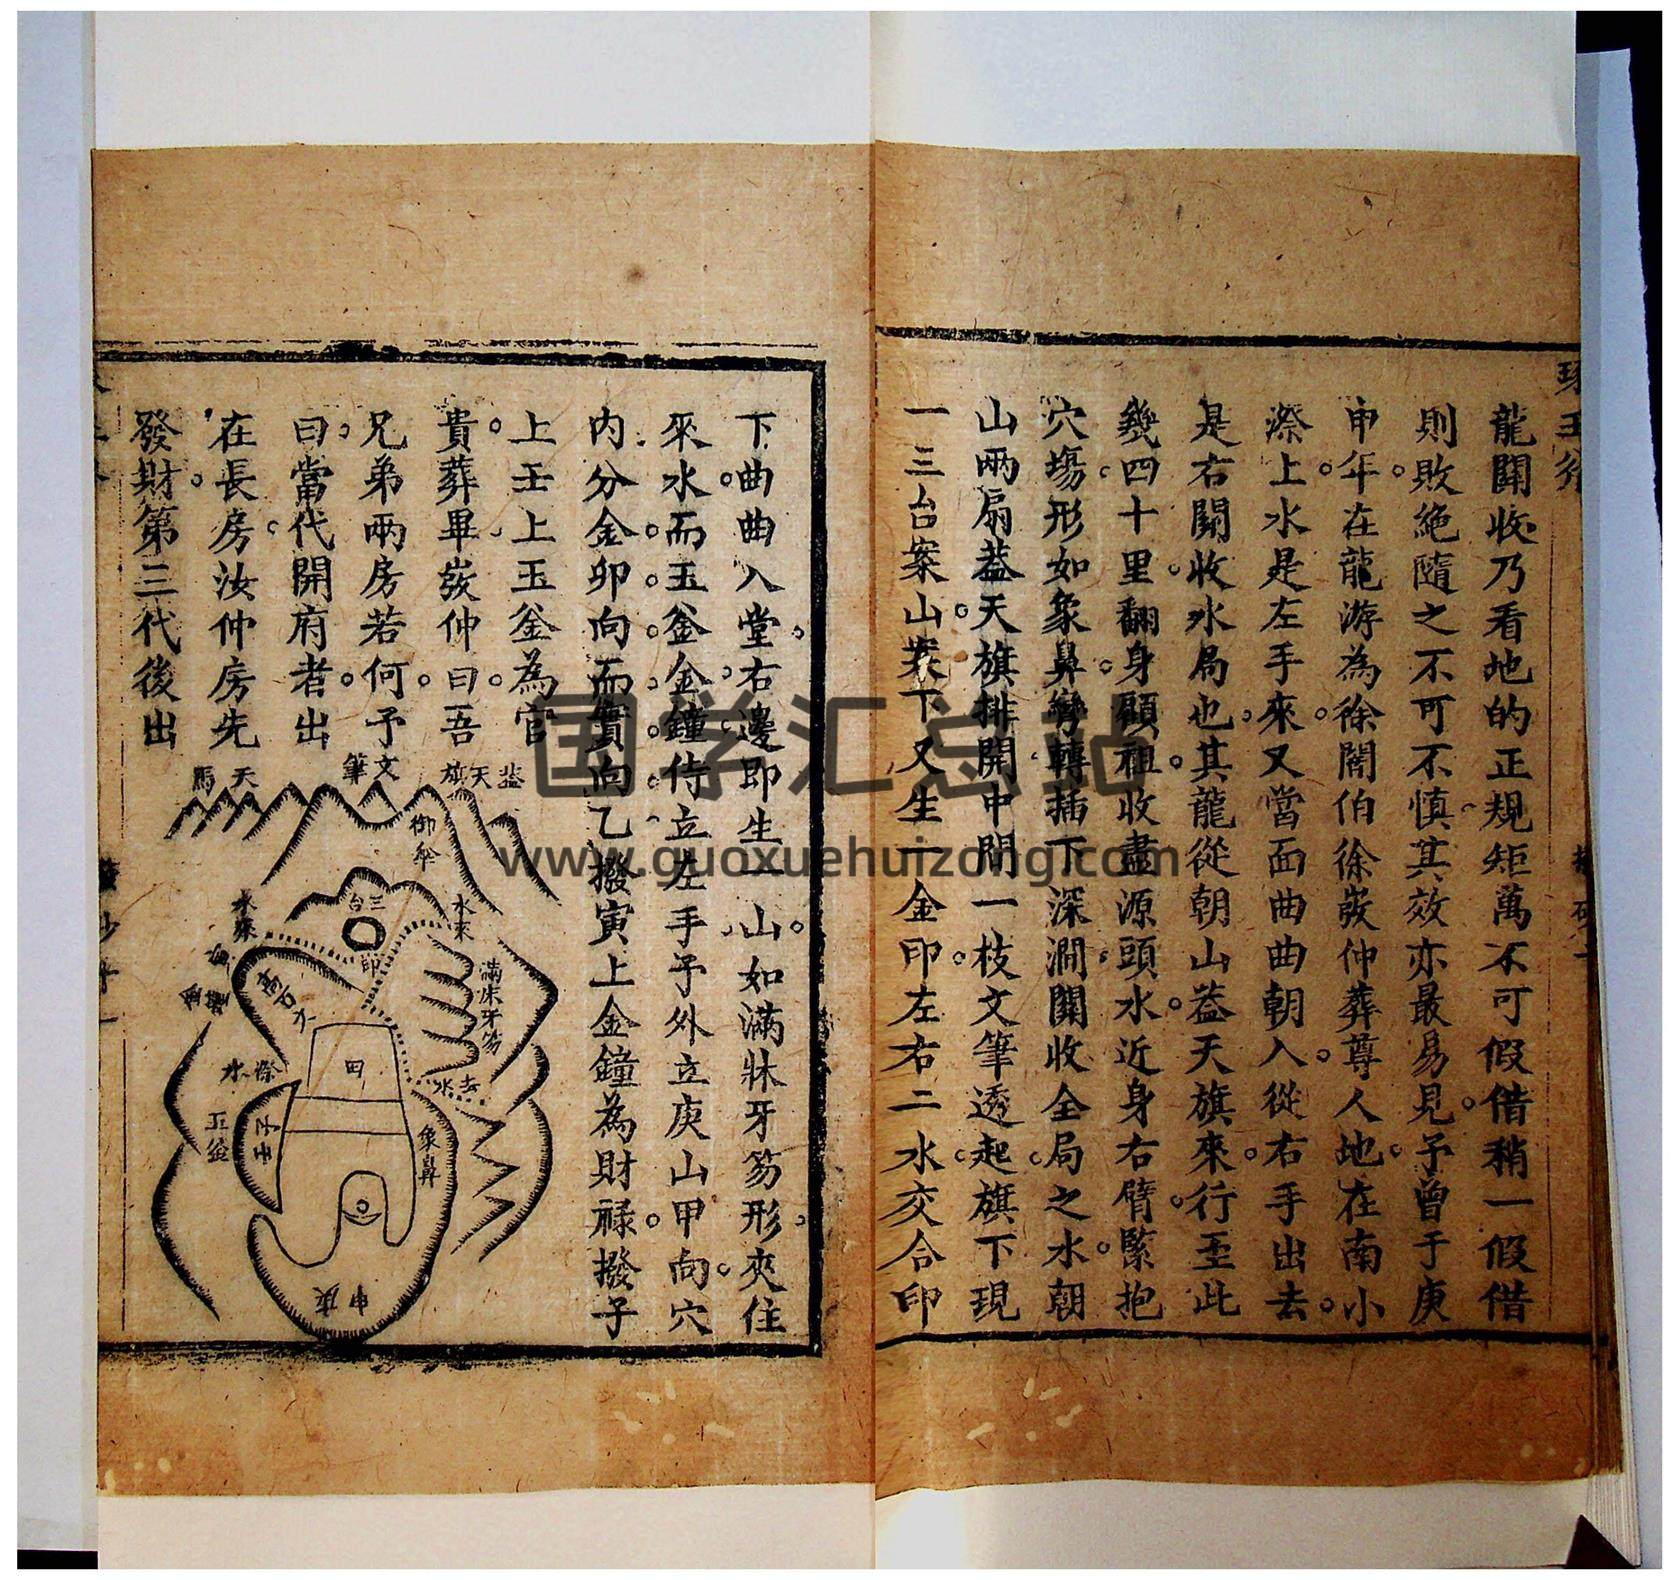 龍闗收乃看地的正規矩萬不可假借稍一假借
則敗絶隨之不可不慎其效亦最易見予曾于庚
申年在龍游為徐闇伯徐嵗仲葬尊人地在南小
漈上水是左手來又當面曲曲朝入從右手出去
是右闗收水局也其龍從朝山葢天旗來行至此
幾四十里翻身顧祖收盡源頭水近身右臂緊抱
穴塲形如象鼻彎轉插下深澗闗收全局之水朝
山兩扇葢天旗排開中間一枝文筆透起旗下現
一三台案山案下又生一金印左右二水交合印
下曲曲入堂右邊即生一山如滿牀牙笏形夾住
來水而玉釜金鐘侍立左手予外立庚山甲向穴
内分金卯向而實向乙撥寅上金鐘為財禄撥子
上壬上玉釜為官
貴葬畢嵗仲曰吾
兄弟兩房若何予
曰當代開府者出
在長房汝仲房先
發財第三代後出
葢天旗
文筆
天馬
御傘
三台
印
水來
水來
滿牀牙笏
田
水去
漈水
玉釜
象鼻
庚申
国学汇总站
www.guoxuehuizong.com